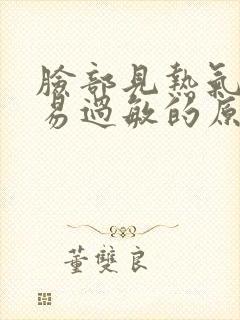 臉部見熱氣
易過敏的原
董雙良